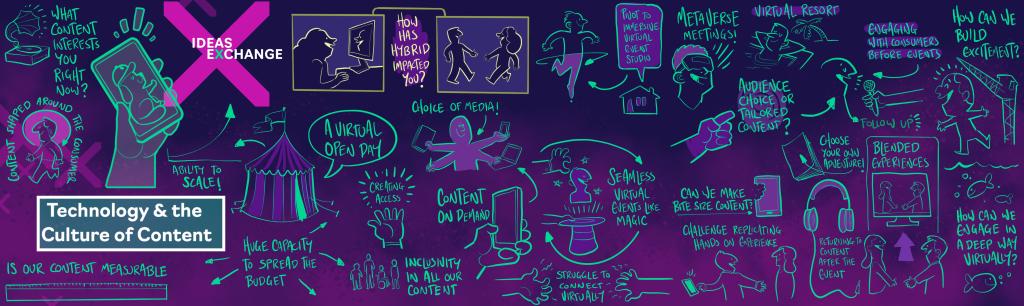 WHAT
CONTENT
INTERESTS
YOU
RIGHT
NOW?
IDEAS
EXCHANGE
HOW
HAS
HYBRID
IMPACTED
YOU?
PIVOT TO
IMMERSIVE
VIRTUAL
EVENT
STUDIO
METAVERSE
MEETINGS!
VIRTUAL RESORT
ENGAGING
WITH CONSUMERS
BEFORE EVENTS
HOW CAN WE
BUILD
EXCITEMENT?
CONTENT SHAPED AROUND THE CONSUMER
ABILITY TO
SCALE!
A VIRTUAL
OPEN DAY
CHOICE OF MEDIA!
AUDIENCE
CHOICE OR
TAILORED
CONTENT?
FOLLOW UPS
CHOOSE
YOUR OWN
ADVENTURE!
BLENDED
EXPERIENCES
CREATING
ACCESS
CONTENT
ON DEMAND
SEAMLESS
VIRTUAL
EVENTS LIKE
MAGIC
CAN WE MAKE
BITE SIZE CONTENT?
CHALLENGE REPLICATING
HANDS ON EXPERIENCE
RETURNING TO
CONTENT
AFTER THE
EVENT
HOW CAN WE
ENGAGE IN
A DEEP WAY
VIRTUALLY?
Technology & the
Culture of Content
IS OUR CONTENT MEASURABLE
HUGE CAPACITY
TO SPREAD THE
BUDGET
INCLUSIVITY
IN ALL OUR
CONTENT
STRUGGLE TO
CONNECT
VIRTUALLY